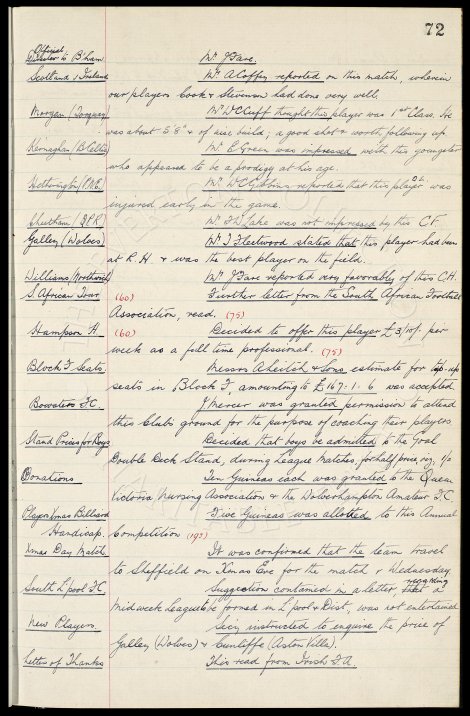 72
Official
Visitor to B'ham. Mr. J Fare.
Scotland v Ireland Mr. A Coffey reported on this match, wherein
our players Cook & Stevenson had done very well.
Morgan (Torquay) Mr. W C Cuff thought this player was 1st Class. He
was about 5'8" & of nice build; a good shot & worth following up.
Kernaghan (B. Celtic) Mr. E Green was impressed with this youngster
who appeared to be a prodigy at his age.
Hetherington (P.N.E.) Mr. W C Gibbins reported that this player O.L. was
injured early in the game.
Cheetham (Q.P.R.) Mr. F W Lake was not impressed by this C.F.
Galley (Wolves) Mr. T Fleetwood stated that this player had been
at R.H. & was the best player on the field.
Williams (Northwich) Mr. J Fare reported very favorably of this C.H.
S African Tour (60) Further letter from the South African Football
Association, read. (75)
Hampson A. (60) Decided to offer this player £3/10/- per
week as a full time professional. (75)
Block F. Seats. Messrs A Leitch & Sons estimate for tip-up
seats in Block F, amounting to £167:1:6 was accepted
Bowaters F.C. J Mercer was granted permission to attend
this Clubs ground for the purpose of coaching their players.
Stand Prices for Boys Decided that boys be admitted to the Goal
Double Deck Stand, during League Matches, for half price, viz, 1/-
Donations Ten Guineas each was granted to the Queen
Victoria Nursing Association & the Wolverhampton Amateur F.C.
Players Xmas Billiard Five Guineas was allotted to this Annual
Handicap. Competition (195)
Xmas Day Match. It was confirmed that the team travel
to Sheffield on Xmas Eve for the match v Wednesday.
South L'pool F.C. Suggestion contained in a letter regarding a
Midweek League be formed in L'pool & Dist, was not entertained
New Players. Secy instructed to enquire the price of
Galley (Wolves) & Cunliffe (Aston Villa).
Letter of Thanks This read from Irish F.A.